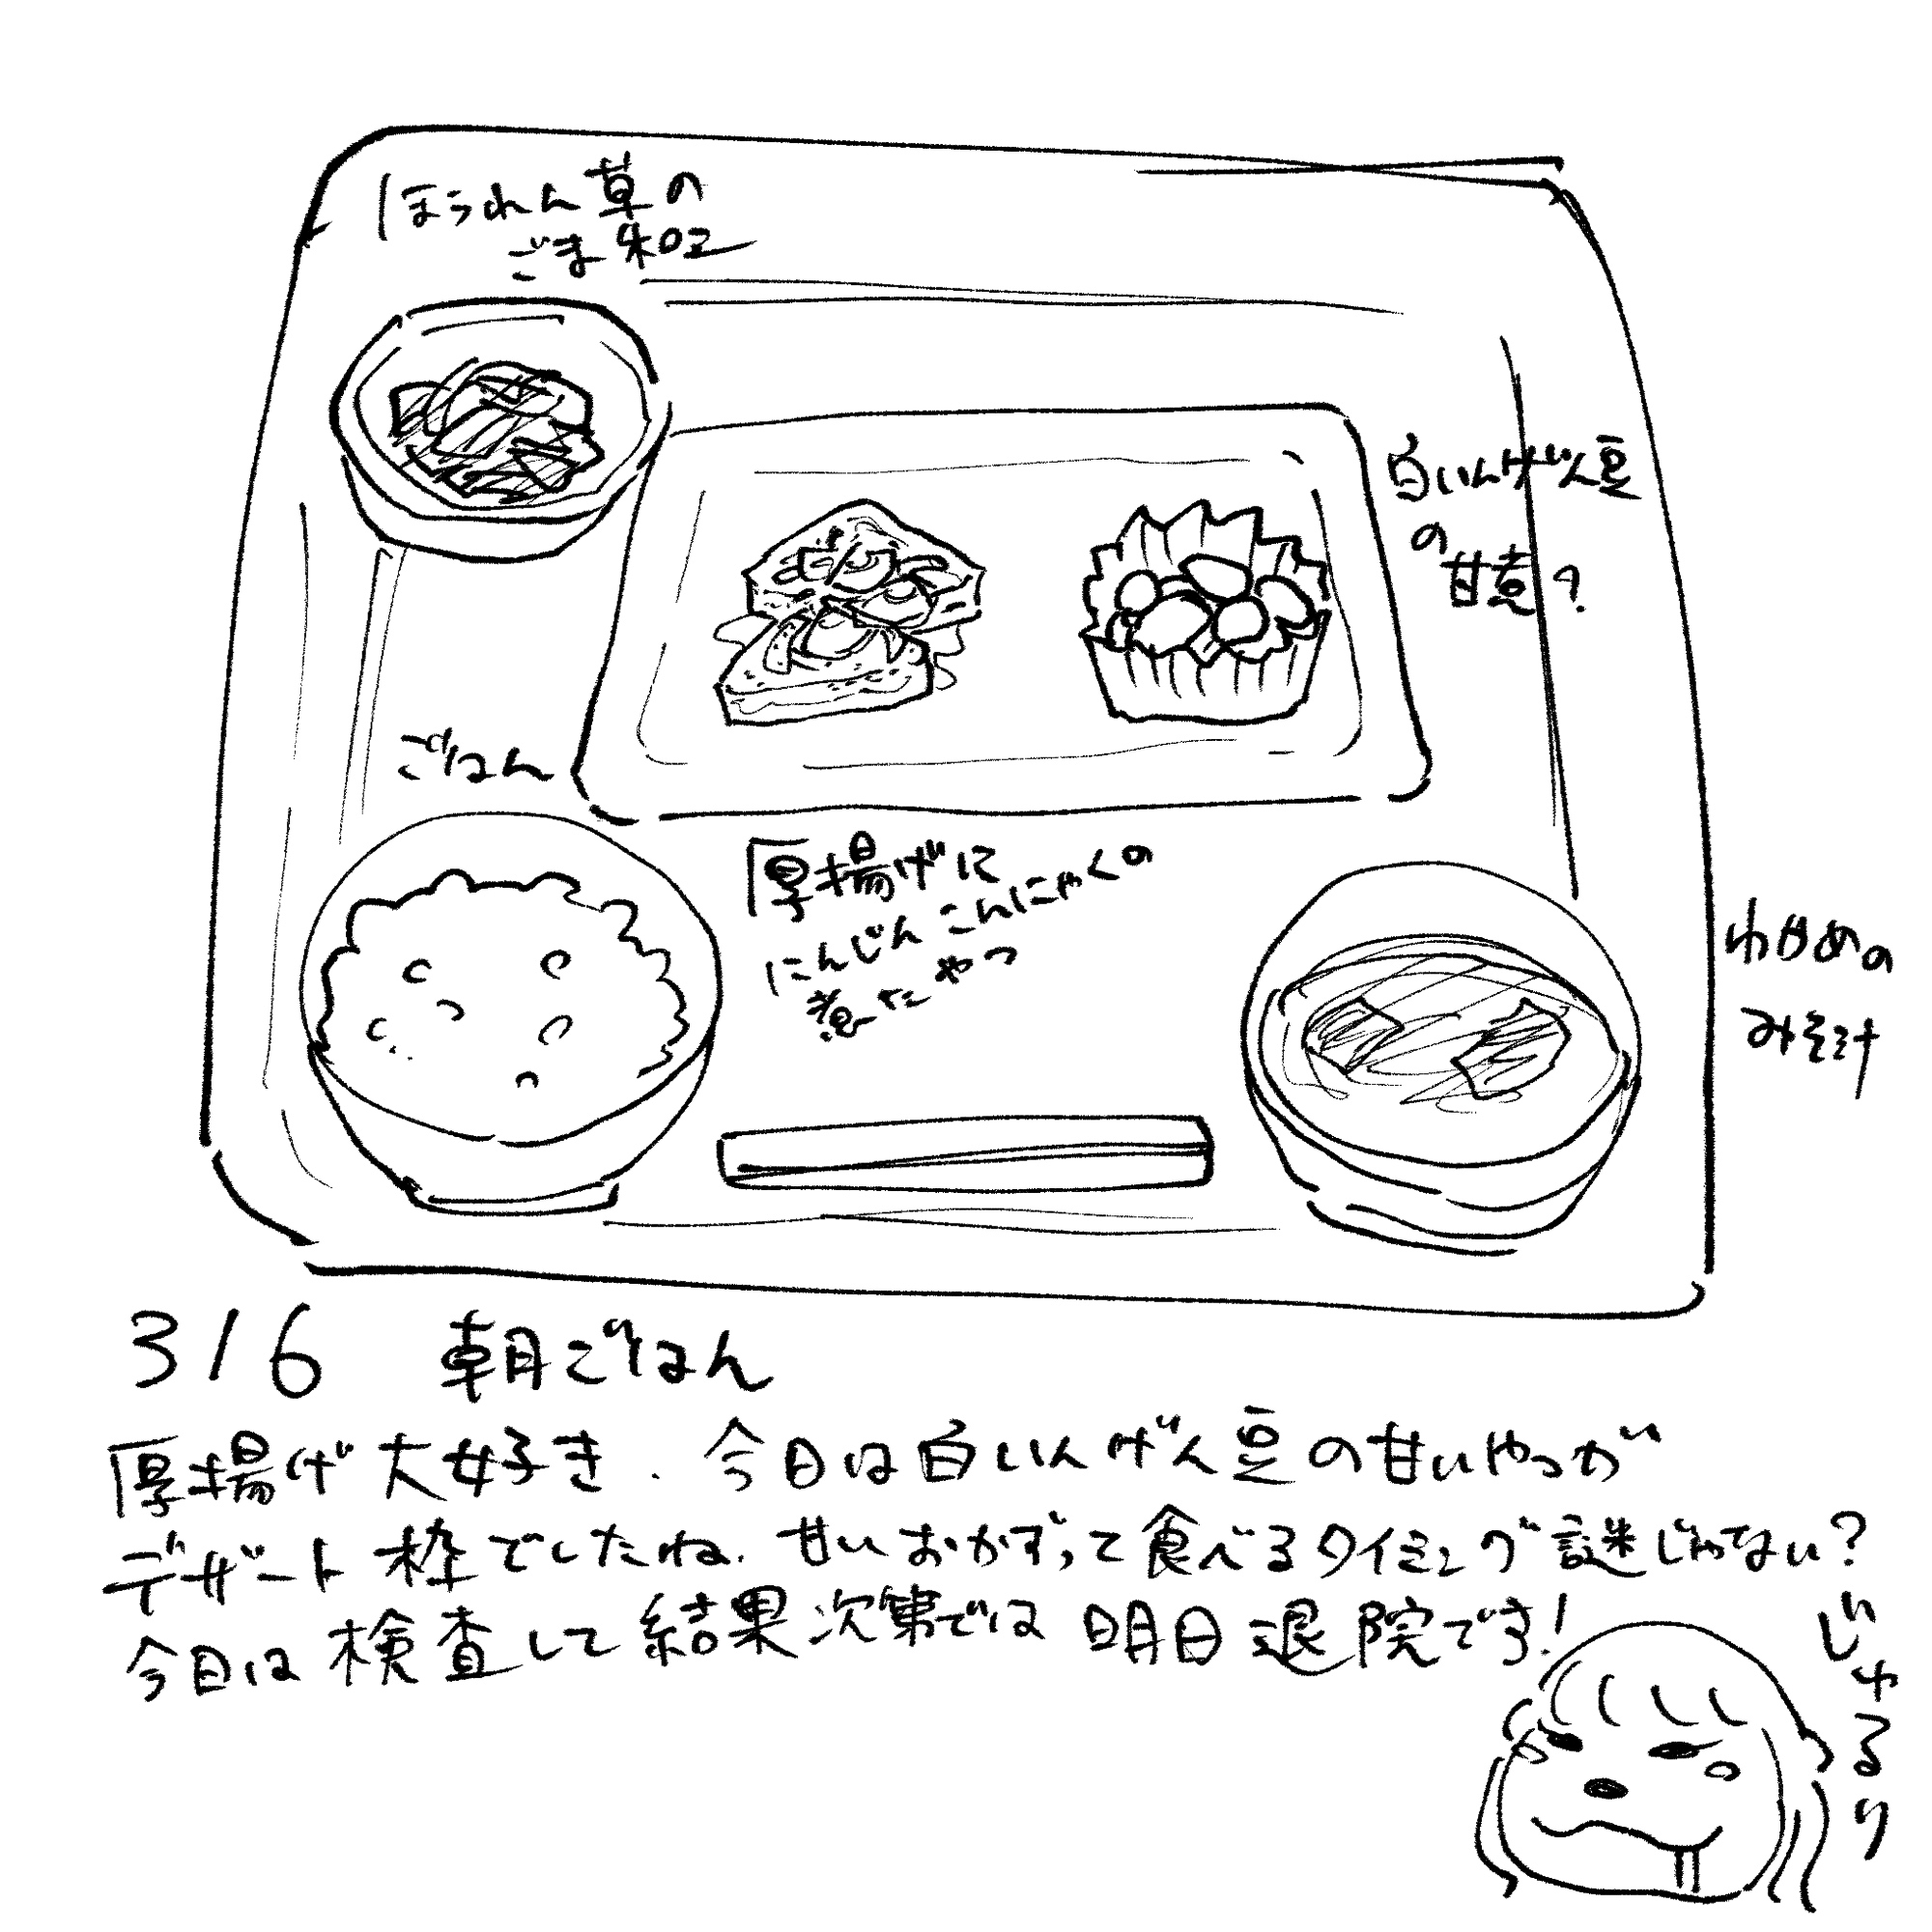 ほうれん草の
ごま和え
白いんげん豆
の甘煮?
ごはん
厚揚げに
にんじんこんにゃくの
煮たやつ
わかめの
みそ汁
3/6 朝ごはん
厚揚げ大好き.今日は白いんげん豆の甘いやつが
デザート枠でしたね.甘いおかずって食べるタイミング謎じゃない?
今日は検査して結果次第では明日退院です!
じゅるり